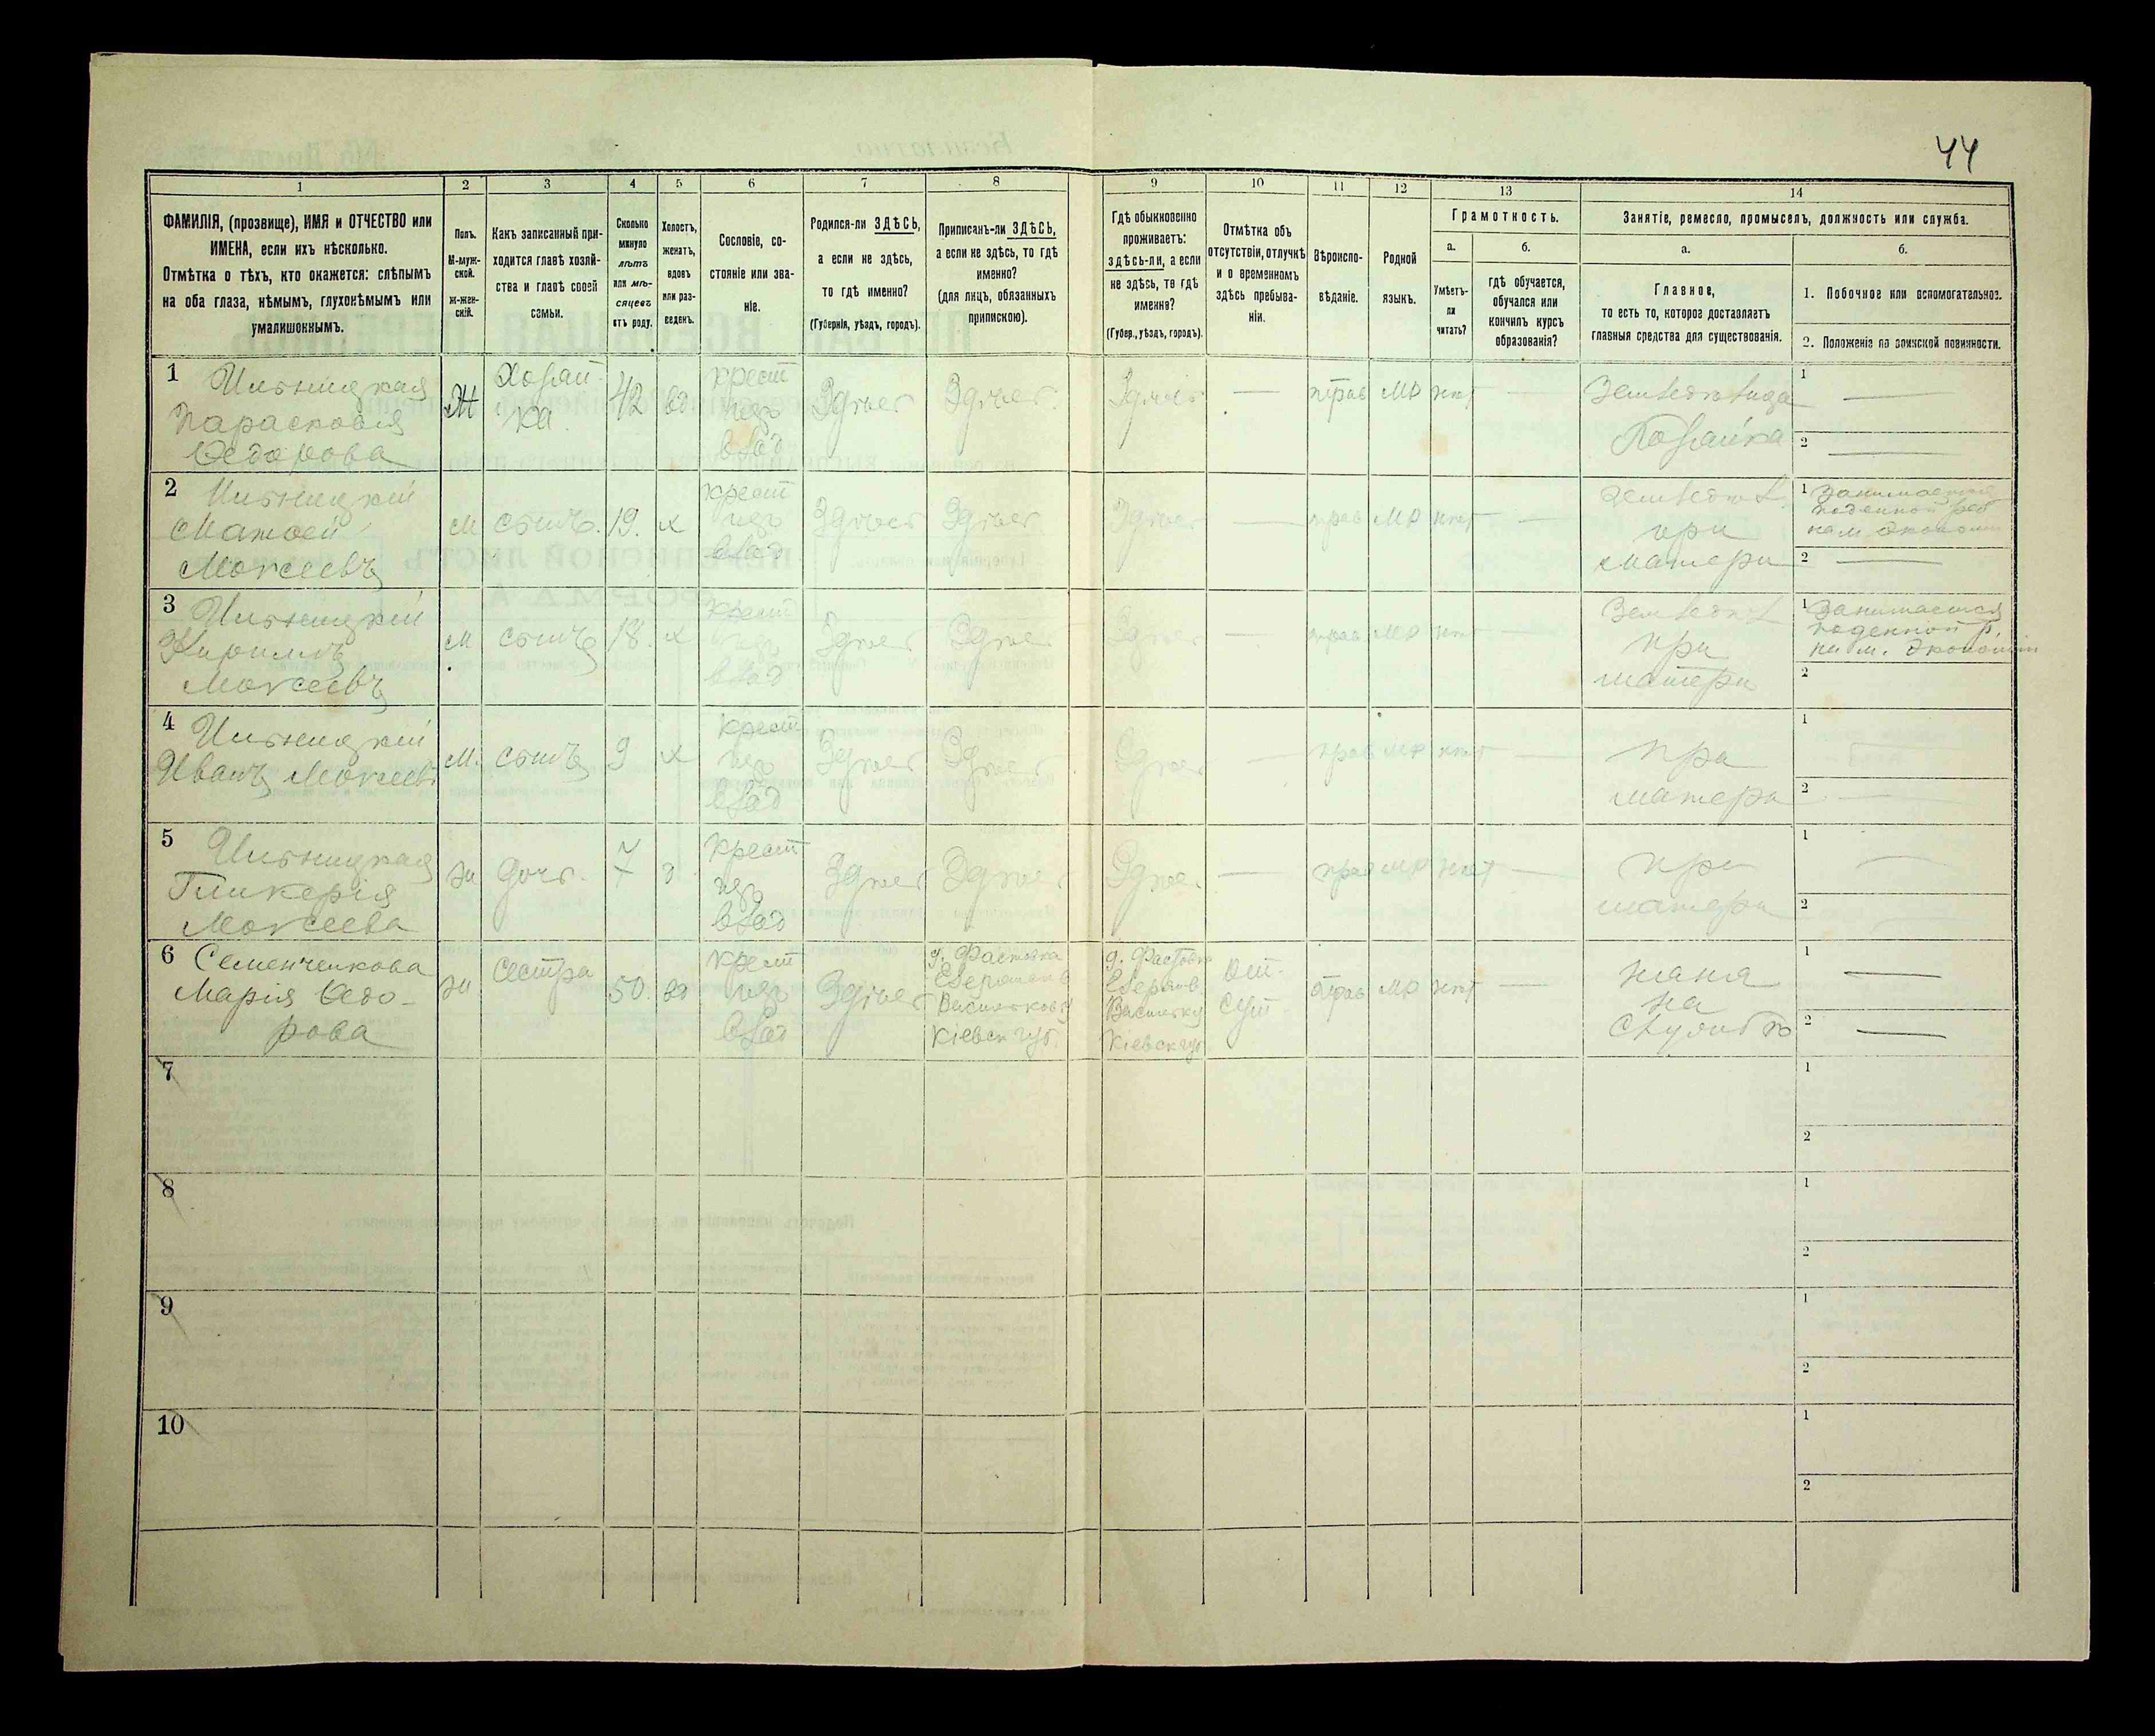 44
1 2 3 4 5 6 7 8 9 10 11 12 13 14
ФАМИЛІЯ, (прозвище), ИМЯ и ОТЧЕСТВО или
ИМЕНА, если ихъ нѣсколько.
Отмѣтка о тѣхъ, кто окажется: слѣпымъ
на оба глаза, нѣмымъ, глухонѣмымъ или
умалишоннымъ.
Полъ.
М-муж-
ской.
ж-жен-
скій.
Какъ записанный при-
ходится главѣ хозяй-
ства и главѣ своей
семьи.
Сколько
минуло
лѣтъ
или мѣ-
сяцевъ
отъ роду.
Холостъ,
женатъ,
вдовъ
или раз-
веденъ.
Сословіе, со-
стояніе или зва-
ніе.
Родился-ли ЗДѢСЬ,
а если не здѣсь,
то гдѣ именно?
(Губернія, уѣздъ, городъ).
Приписанъ-ли ЗДѢСЬ,
а если не здѣсь, то гдѣ
именно?
(для лицъ, обязанныхъ
припискою).
Гдѣ обыкновенно
проживаетъ:
здѣсь-ли, а если
не здѣсь, то гдѣ
именно?
(Губер., уѣздъ, городъ).
Отмѣтка объ
отсутствіи, отлучкѣ
и о временномъ
здѣсь пребыва-
ніи.
Вѣроиспо-
вѣданіе.
Родной
языкъ.
Грамотность.
а.
Умѣетъ-
ли
читать?
б.
гдѣ обучается,
обучался или
кончилъ курсъ
образованія?
Занятіе, ремесло, промыселъ, должность или служба.
а.
Главное,
то есть то, которое доставляетъ
главныя средства для существованія.
б.
1. Побочное или вспомогательное.
2. Положеніе по воинской повинности.
1
Парасковія
Ѳедорова
Ж
Хозяй-
ка
42
вд
крест
изъ
влад
Здѣсь
Здѣсь
Здѣсь
—
прав
МР
нѣт
—
Хозяйка
1 —
2 —
2
Матвей
Моисеевъ
М
сынъ.
19.
х
крест
изъ
влад
Здѣсь
Здѣсь
—
прав
МР
нѣт
—
при
матери
1 Занимается
2 —
3
Кирилъ
Моисеевъ
м
сынъ
18.
х
крест
изъ
влад
Здѣсь
Здѣсь
Здѣсь
—
прав
МР
нѣт
—
при
матери
1 Занимается
2
4
Иванъ Моисеевъ
М.
сынъ
9
х
крест
изъ
влад
Здѣсь
Здѣсь
Здѣсь
—
прав
МР
нѣт
—
при
матери
1
2 —
5
Гликерія
Моисеева
ж
дочь.
7
крест
изъ
влад
Здѣсь
Здѣсь
Здѣсь
—
прав
МР
нѣт
—
при
матери
1 —
2
6 Семенченкова
Марія Ѳедо-
рова
ж
Сестра
50.
вд
крест
изъ
влад
Здѣсь
Кіевск губ.
Кіевск губ
От-
сут
прав
МР
нѣт
—
няня
на
1 —
2 —
7
1
2
8
1
2
9
1
2
10
1
2